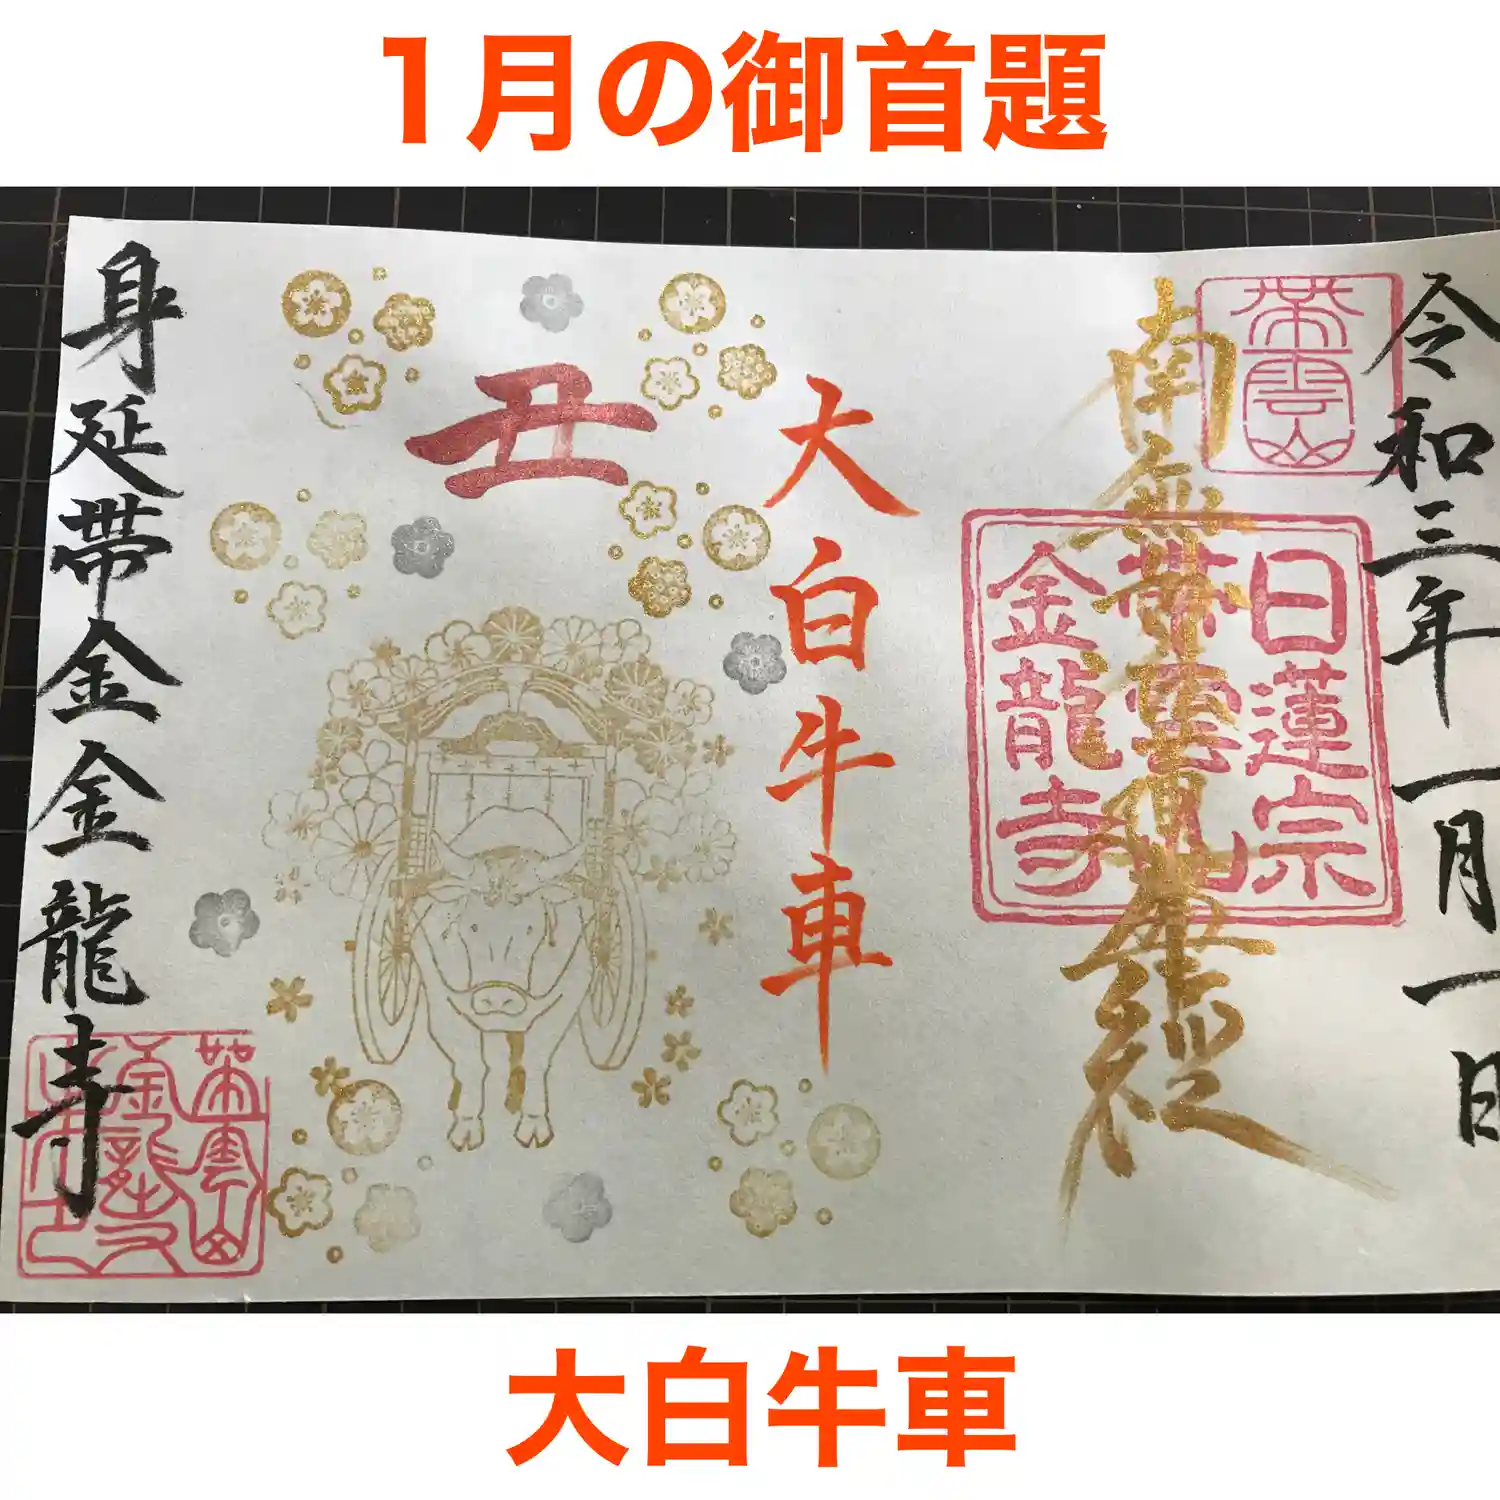 1月の御首題
令和三年一月一日
帯雲山
南無妙法蓮華經
日蓮宗
帯雲山
金龍寺
大白牛車
丑
身延帯金金龍寺
大白牛車